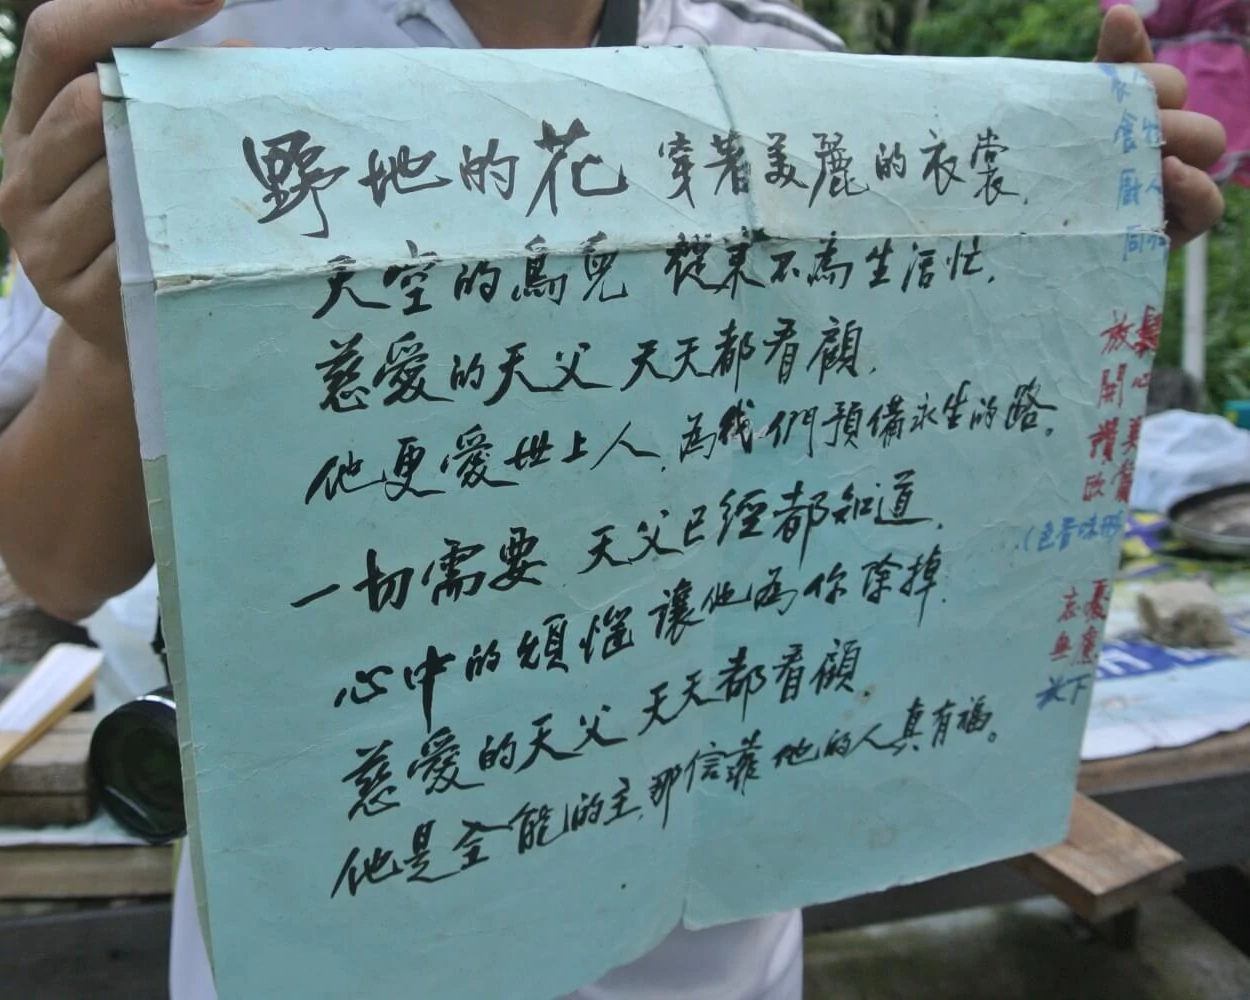 野地的花 穿著美麗的衣裳.
天空的鳥兒 從來不為生活忙.
慈愛的天父 天天都看顧.
他更愛世上人.為我們預備永生的路.
一切需要 天父已經都知道.
心中的煩惱 讓他為你除掉.
慈愛的天父 天天都看顧.
他是全能的主.那信靠他的人真有福。
放鬆
開心
讚美
(色香味
忘憂
無慮
放下